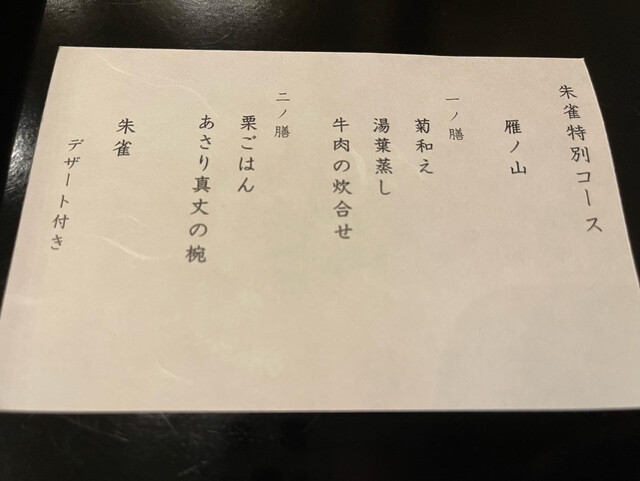 朱雀特別コース
雁ノ山
一ノ膳
菊和え
湯葉蒸し
牛肉の炊合せ
二ノ膳
栗ごはん
あさり真丈の椀
朱雀
デザート付き